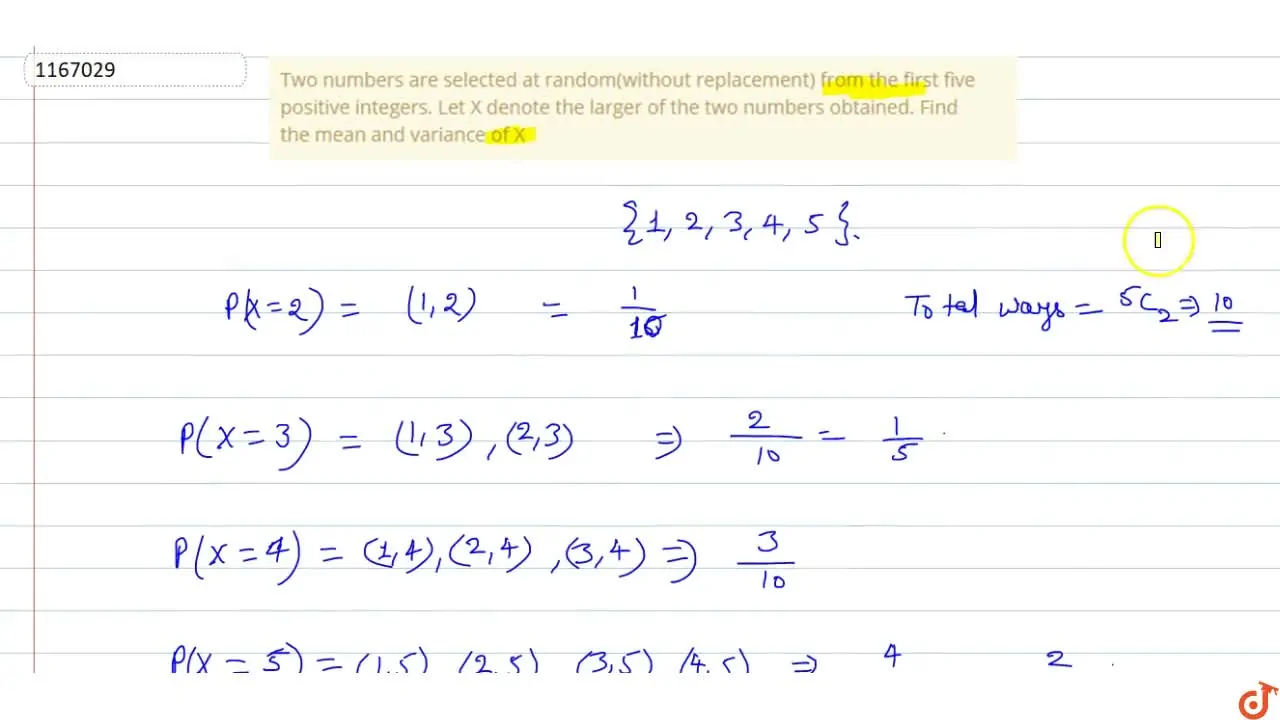 1167029
Two numbers are selected at random(without replacement) from the first five
positive integers. Let X denote the larger of the two numbers obtained. Find
the mean and variance of X
{1, 2, 3, 4, 5}.
P(X=2) = (1,2) = 1/10
Total ways = 5C2 ⇒ 10
P(X=3) = (1,3), (2,3) ⇒ 2/10 = 1/5
P(X=4) = (1,4), (2,4), (3,4) ⇒ 3/10
P(X=5) = (1,5) (2,5) (3,5) (4,5) ⇒ 4 2